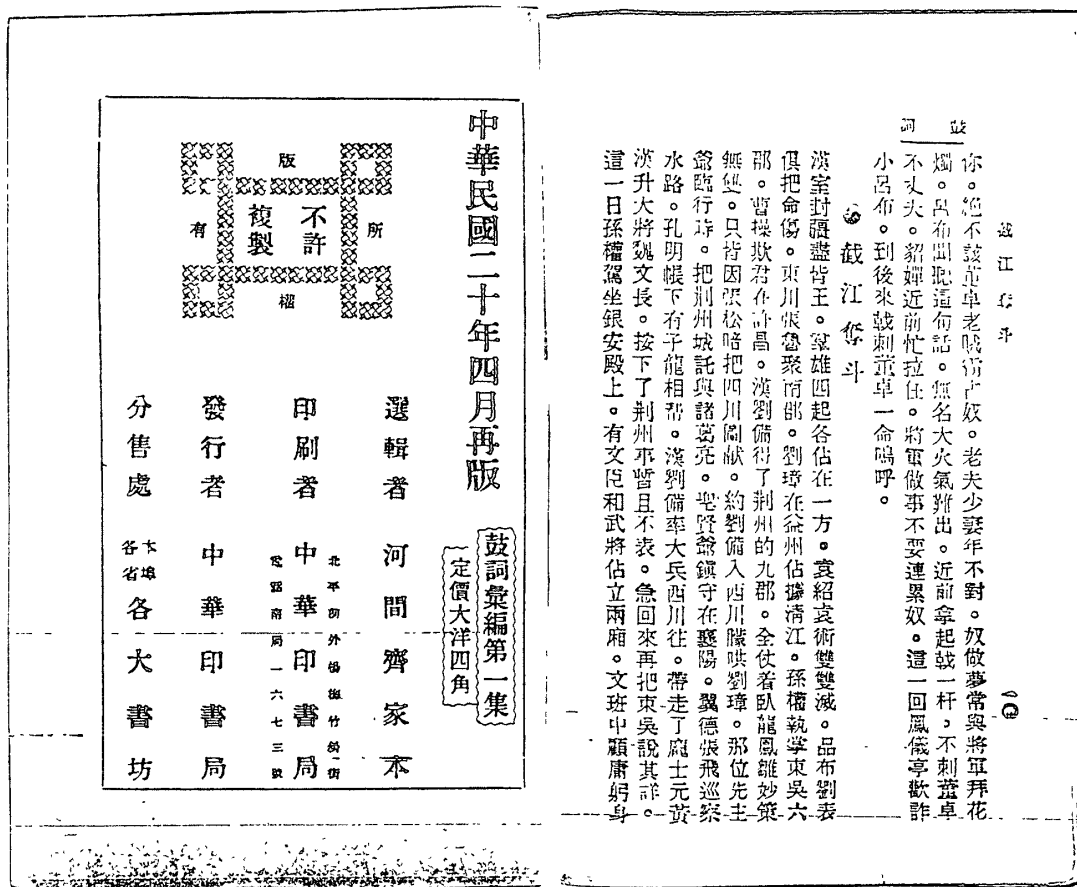 鼓詞
截江奪斗
一〇
你。絕不該董卓老賊霸占奴。老夫少妻年不對。奴做夢常與將軍拜花
燭。呂布聞聽這句話。無名大火氣難出。近前拿起戟一杆，不刺董卓
不丈夫。貂嬋近前忙拉住。將軍做事不要連累奴。這一回鳳儀亭歡詐
小呂布。到後來戟刺董卓一命嗚呼。
截江奪斗
漢室封疆盡皆王。羣雄四起各佔在一方。袁紹袁術雙雙滅。呂布劉表
俱把命傷。東川張魯聚南郡。劉璋在益州佔據清江。孫權執掌東吳六
郡。曹操欺君在許昌。漢劉備得了荆州的九郡。全仗着臥龍鳳雛妙策
無雙。只皆因張松暗把四川圖献。約劉備入西川朦哄劉璋。那位先主
爺臨行時。把荆州城託與諸葛亮。聖賢爺鎮守在襄陽。翼德張飛巡察
水路。孔明帳下有子龍相帮。漢劉備率大兵西川往。帶走了龐士元黃
漢升大將魏文長。按下了荆州事暫且不表。急回來再把東吳說其詳。
這一日孫權駕坐銀安殿上。有文臣和武將佔立兩廂。文班中顧庸躬身
中華民國二十年四月再版
鼓詞彙編第一集
定價大洋四角
版權所有
不許複製
選輯者 河間齊家本
印刷者 中華印書局
北平前外楊梅竹斜街
電話南局一六七三號
發行者 中華印書局
分售處 本埠各省各大書坊